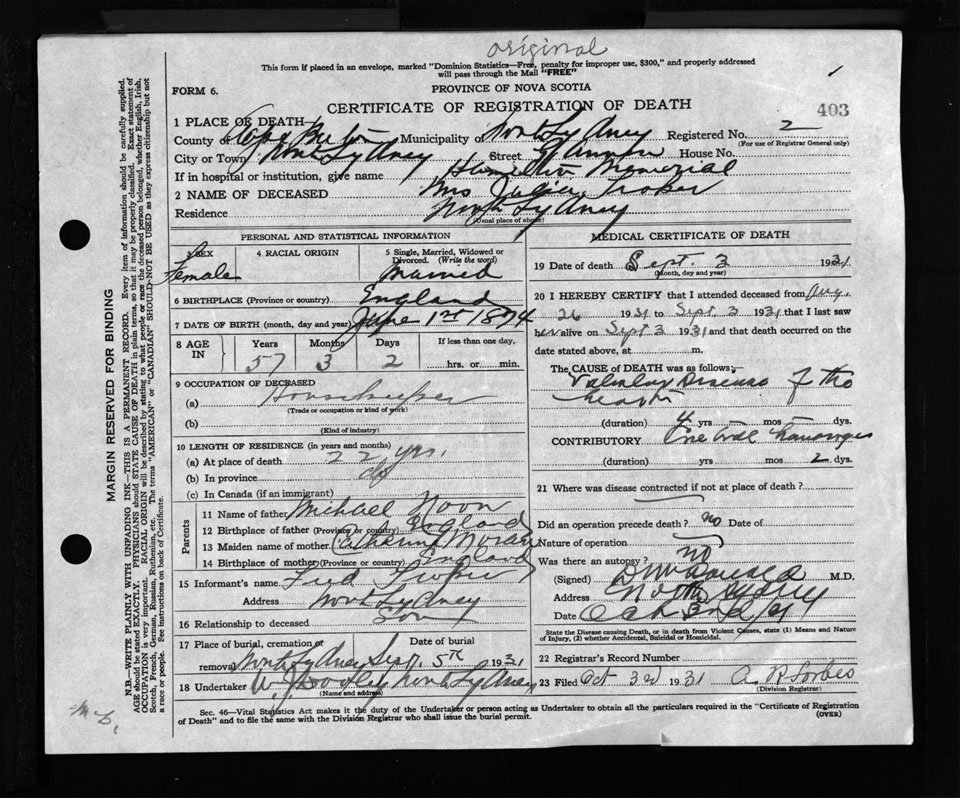 original
This form if placed in an envelope, marked "Dominion Statistics—Free, penalty for improper use, $300," and properly addressed
will pass through the Mail "FREE"
FORM 6.
PROVINCE OF NOVA SCOTIA
CERTIFICATE OF REGISTRATION OF DEATH
403
1 PLACE OF DEATH
County of Cape Breton Municipality of North Sydney Registered No. 2
(For use of Registrar General only)
City or Town North Sydney Street House No.
If in hospital or institution, give name Hamilton Memorial
2 NAME OF DECEASED Mrs Julia Proker
Residence North Sydney
(Usual place of abode)
PERSONAL AND STATISTICAL INFORMATION
3 SEX 4 RACIAL ORIGIN 5 Single, Married, Widowed or
Divorced. (Write the word)
Female Married
6 BIRTHPLACE (Province or country) England
7 DATE OF BIRTH (month, day and year) June 1st 1874
8 AGE IN Years Months Days If less than one day,
57 3 2 hrs. or min.
9 OCCUPATION OF DECEASED
(a) Housekeeper
(Trade or occupation or kind of work)
(b)
(Kind of industry)
10 LENGTH OF RESIDENCE (in years and months)
(a) At place of death 22 yrs.
(b) In province do
(c) In Canada (if an immigrant)
Parents
11 Name of father Michael Noon
12 Birthplace of father (Province or country) England
13 Maiden name of mother Catherine Moran
14 Birthplace of mother (Province or country) England
15 Informant's name Fred Proker
Address North Sydney
16 Relationship to deceased Son
17 Place of burial, cremation or Date of burial
removal North Sydney Sept. 5th 1931
18 Undertaker North Sydney
(Name and address)
MEDICAL CERTIFICATE OF DEATH
19 Date of death Sept. 3 1931
(Month, day and year)
20 I HEREBY CERTIFY that I attended deceased from Aug.
26 1931 to Sept 3 1931 that I last saw
her alive on Sept 3 1931 and that death occurred on the
date stated above, at m.
The CAUSE of DEATH was as follows:—
Valvular Disease of the
heart
(duration) 4 yrs mos dys.
CONTRIBUTORY
(duration) yrs mos 2 dys.
21 Where was disease contracted if not at place of death?
Did an operation precede death? no Date of
Nature of operation
Was there an autopsy? no
(Signed) M.D.
Address North Sydney
Date
State the Disease causing Death, or in death from Violent Causes, state (1) Means and Nature
of Injury, (2) whether Accidental, Suicidal or Homicidal.
22 Registrar's Record Number
23 Filed Oct 3rd 1931 A. R. Forbes
(Division Registrar)
Sec. 46—Vital Statistics Act makes it the duty of the Undertaker or person acting as Undertaker to obtain all the particulars required in the "Certificate of Registration
of Death" and to file the same with the Division Registrar who shall issue the burial permit.
(OVER)
MARGIN RESERVED FOR BINDING
N.B.—WRITE PLAINLY WITH UNFADING INK—THIS IS A PERMANENT RECORD. Every item of information should be carefully supplied.
AGE should be stated EXACTLY. PHYSICIANS should STATE CAUSE OF DEATH in plain terms, so that it may be properly classified. Exact statement of
OCCUPATION is very important. RACIAL ORIGIN will be described by stating to what people or race the deceased person belonged, whether English, Irish,
Scotch, French, German, Russian, Ruthenian, etc. The terms "AMERICAN" or "CANADIAN" SHOULD NOT BE USED as they express citizenship but not
a race or people. See instructions on back of Certificate.